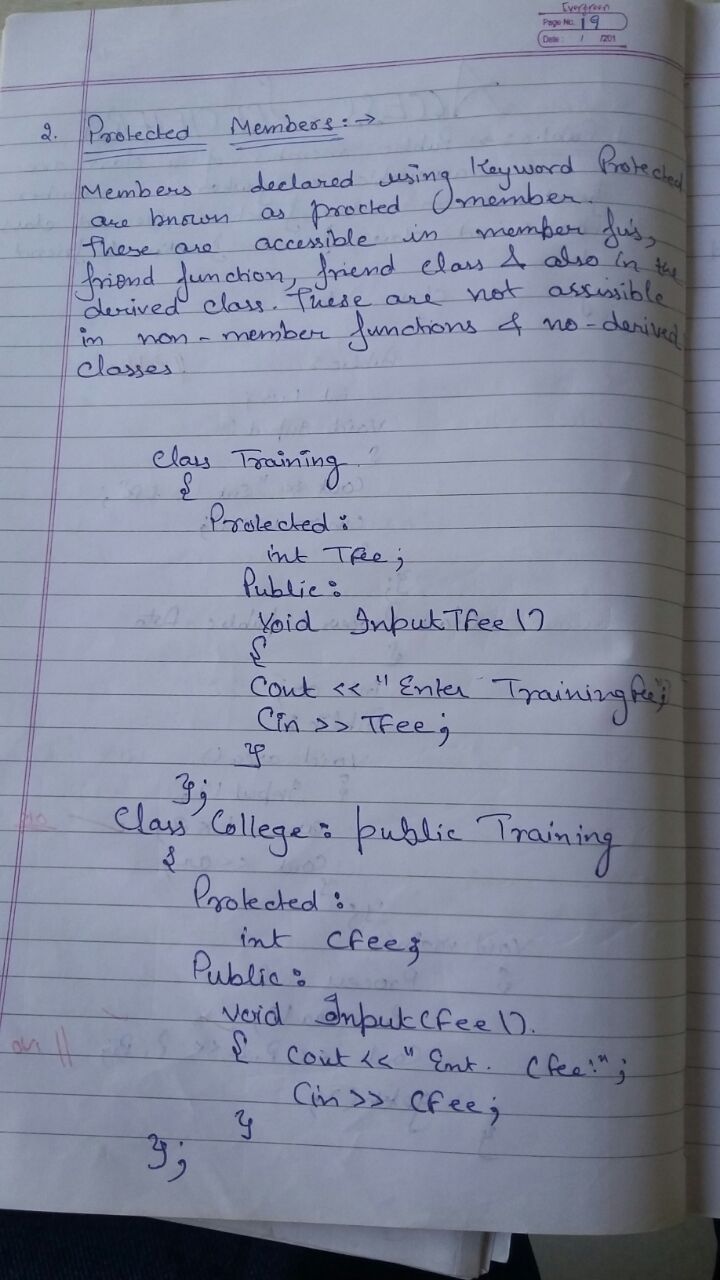 Evergreen
Page No. 19
Date: / /201
2. Protected Members:→
Members declared using Keyword Protected
are known as procted member.
These are accessible in member fu's,
friend function, friend class & also in the
derived class. These are not assissible
in non-member functions & no-derived
classes.
Class Training
{
Protected:
int Tfee;
Public:
Void InputTfee()
{
Cout << "Enter Training fee;
Cin >> Tfee;
}
};
Class College: public Training
{
Protected:
int Cfee;
Public:
void InputCfee().
{ Cout << "Ent. Cfee!";
Cin >> Cfee;
}
};